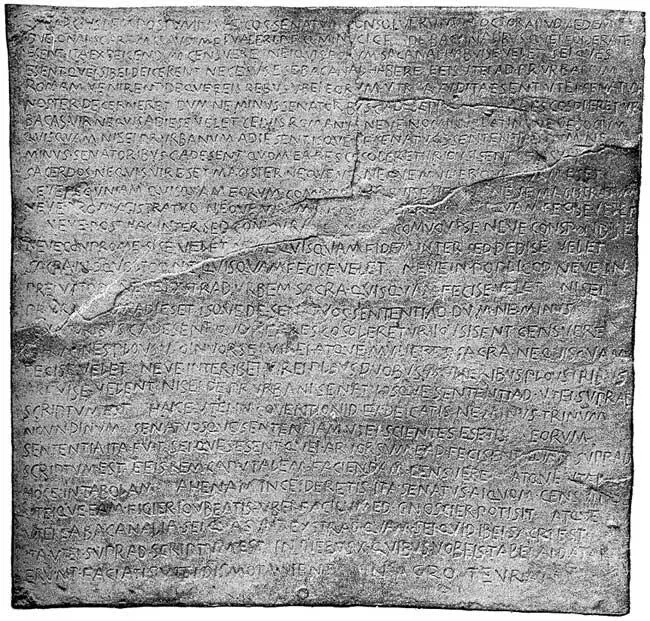 MARCIVS L F S POSTVMIVS L F COS SENATVM CONSOLVERVNT N OCTOB APVD AEDEM
DVELONAI SC ARF M CLAVDI M F L VALERI P F Q MINVCI C F DE BACANALIBVS QVEI FOIDERATEI
ESENT ITA EXDEICENDVM CENSVERE NEIQVIS EORVM BACANAL HABVISE VELET SEI QVES
ESENT QVEI SIBEI DEICERENT NECESVS ESE BACANAL HABERE EEIS VTEI AD PR VRBANVM
ROMAM VENIRENT DEQVE EEIS REBVS VBEI EORVM VTR A AVDITA ESENT VTEI SENATVS
NOSTER DECERNERET DVM NE MINVS SENATORBVS C ADESENT RES COSOLERETVR
BACAS VIR NEQVIS ADIESE VELET CEIVIS ROMANVS NEVE NOMINVS LATINI
QVISQVAM NISEI PR VRBANVM ADIESENT ISQVE DE SENATVOS SENTENTIAD DVM NE
MINVS SENATORIBVS C ADESENT QVOM EA RES COSOLERETVR IOVSISENT
SACERDOS NEQVIS VIR ESET MAGISTER NEQVE VIR NEQVE MVLIER ESET
NEVE PECVNIAM QVISQVAM EORVM COMOINEM HABVISE VELET NEVE MAGISTRATVM
NEVE PRO MAGISTRATVD NEQVE VIRVM QVIQVAM FECISE VELET
NEVE POST HAC INTER SED CONIOVRASE NEVE COMVOVISE NEVE CONSPONDISE
NEVE CONPROMESISE VELET NEVE QVISQVAM FIDEM INTER SED DEDISE VELET
SACRA IN OQVOLTOD NE QVISQVAM FECISE VELET NEVE IN POPLICOD NEVE IN
PREIVATOD NEVE EXSTRAD VRBEM SACRA QVISQVAM FECISE VELET NISEI
PR VRBANVM ADIESET ISQVE DE SENATVOS SENTENTIAD DVM NE MINVS
SENATORIBVS C ADESENT QVOM EA RES COSOLERETVR IOVSISENT CENSVERE
HOMINES PLOVS V OINVORSEI VIREI ATQVE MVLIERES SACRA NE QVISQVAM
FECISE VELET NEVE INTER IBEI VIREI PLOVS DVOBVS MVLIERIBVS PLOVS TRIBVS
ARFVISE VELENT NISEI DE PR VRBANI SENATVOSQVE SENTENTIAD VTEI SVPRAD
SCRIPTVM EST HAICE VTEI IN COVENTIONID EXDEICATIS NE MINVS TRINVM
NOVNDINVM SENATVOSQVE SENTENTIAM VTEI SCIENTES ESETIS EORVM
SENTENTIA ITA FVIT SEI QVES ESENT QVEI ARVORSVM EAD FECISENT QVAM SVPRAD
SCRIPTVM EST EEIS REM CAPVTALEM FACIENDAM CENSVERE ATQVE VTEI
HOCE IN TABOLAM AHENAM INCEIDERETIS ITA SENATVS AIQVOM CENSVIT
VTEIQVE EAM FIGIER IOVBEATIS VBEI FACILVMED GNOSCIER POTISIT ATQVE
VTEI EA BACANALIA SEI QVA SVNT EXSTRAD QVAM SEI QVID IBEI SACRI EST
ITA VTEI SVPRAD SCRIPTVM EST IN DIEBVS X QVIBVS VOBEIS TABELAI DATAI
ERVNT FACIATIS VTEI DISMOTA SIENT IN AGRO TEVRANO